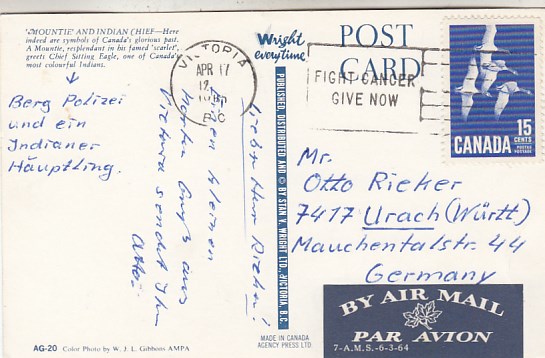 "MOUNTIE' AND INDIAN CHIEF—Here
indeed are symbols of Canada's glorious past.
A Mountie, resplendent in his famed 'scarlet',
greets Chief Sitting Eagle, one of Canada's
most colourful Indians.
Berg Polizei
und ein
Indianer
Häuptling.
Lieber Herr Rieker!
Einen kleinen
Gruß aus
Victoria sendet Ihr
Otto.
AG-20 Color Photo by W. J. L. Gibbons AMPA
Wright
everytime
PUBLISHED, DISTRIBUTED AND © BY STAN V. WRIGHT LTD., VICTORIA, B.C.
MADE IN CANADA
AGENCY PRESS LTD
POST
CARD
VICTORIA
APR 17
12
B C
FIGHT CANCER
GIVE NOW
15
CENTS
CANADA
POSTES
POSTAGE
Mr.
Otto Rieker
7417 Urach (Württ)
Mauchentalstr. 44
Germany
BY AIR MAIL
PAR AVION
7-A.M.S.-6-3-64